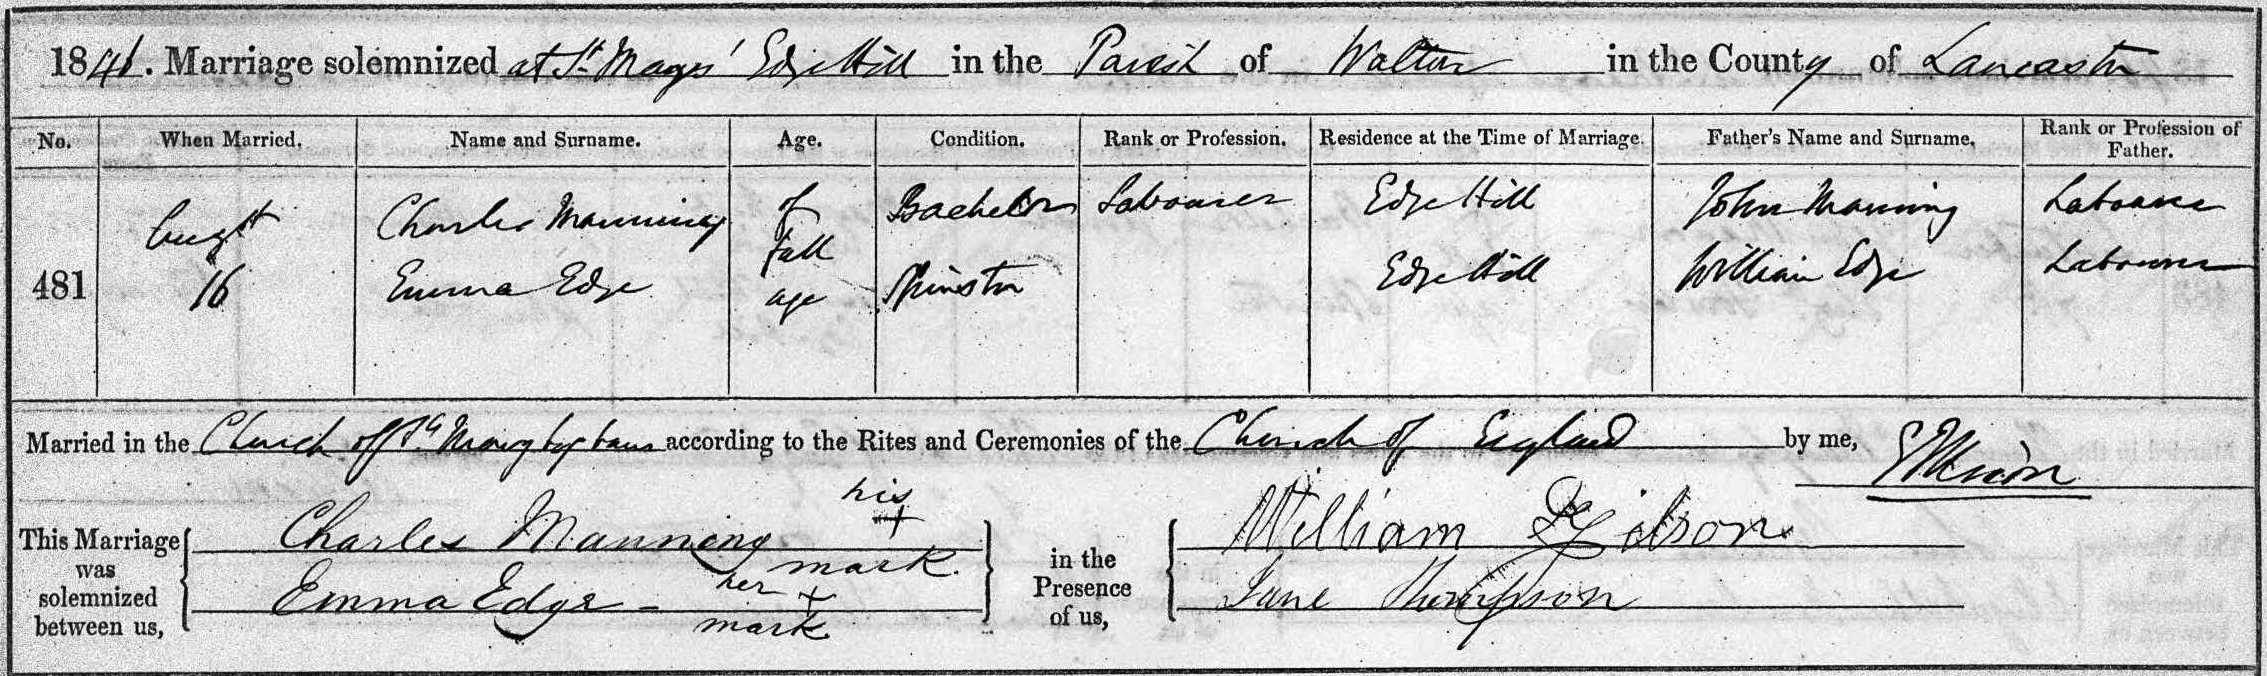 1846. Marriage solemnized at St. Marys' Edge Hill in the Parish of Walton in the County of Lancaster
No. When Married. Name and Surname. Age. Condition. Rank or Profession. Residence at the Time of Marriage. Father's Name and Surname. Rank or Profession of Father.
Augst Charles Manning of Bachelor Labourer Edge Hill John Manning Labourer
full
481 16 Emma Edge age Spinster Edge Hill William Edge Labourer
Married in the Church of St. Mary according to the Rites and Ceremonies of the Church of England by me,
This Marriage was solemnized between us, Charles Manning his + mark
Emma Edge - her + mark
in the Presence of us, William Gibson
Jane Thompson